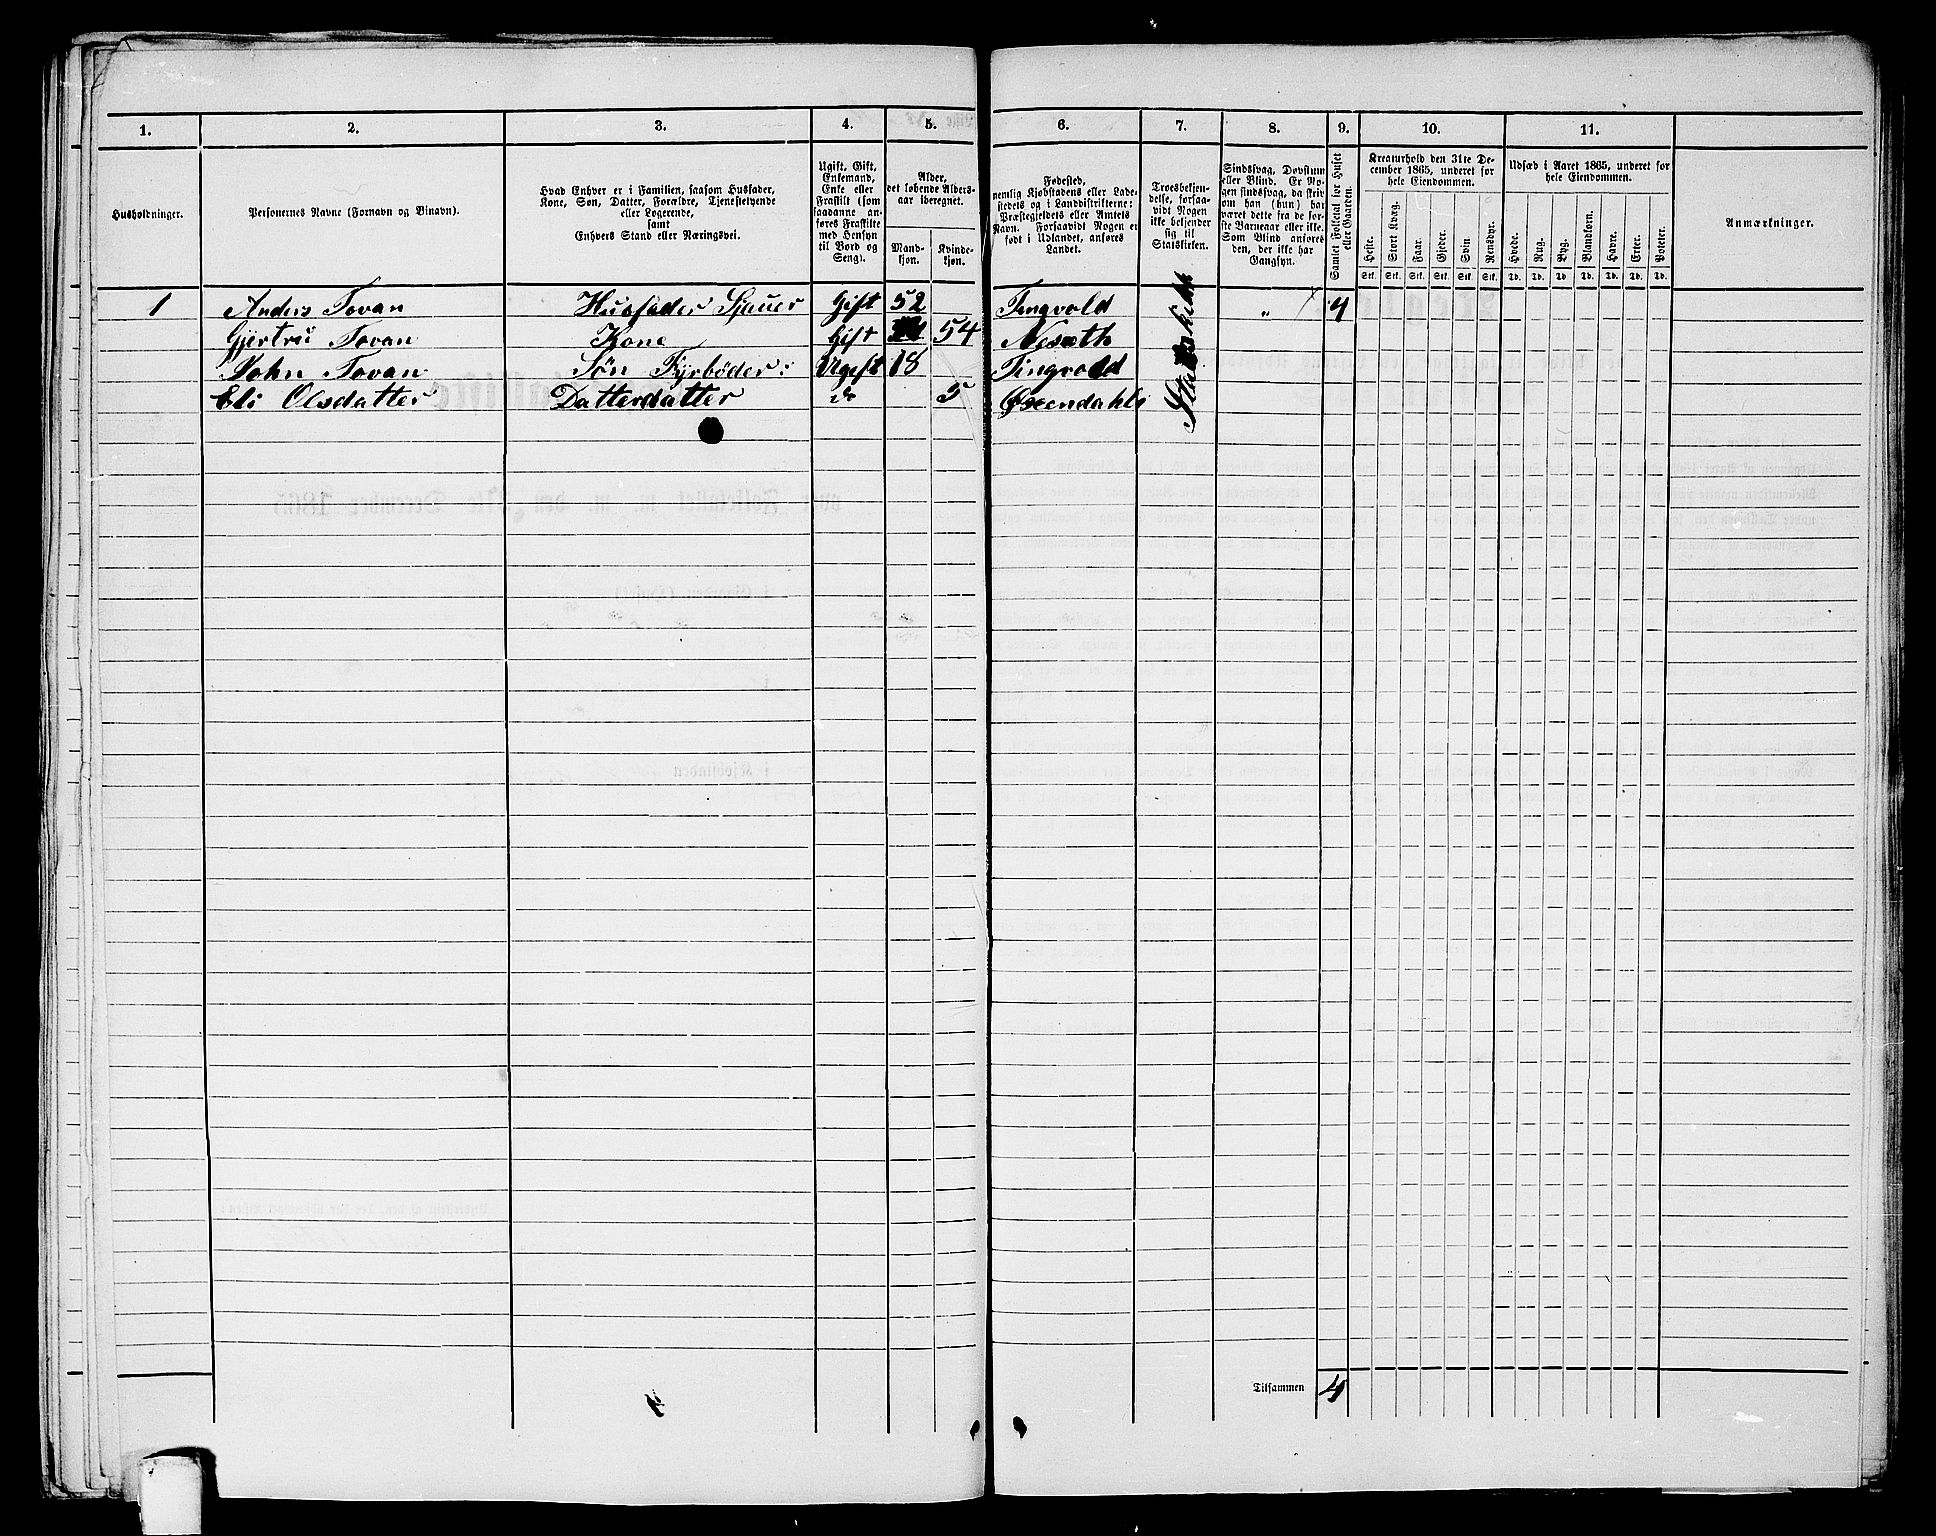 1. 2. 3. 4. 5. 6. 7. 8. 9. 10. 11.
Husholdninger.
Personernes Navne (Fornavn og Binavn).
Hvad Enhver er i Familien, saasom Husfader,
Kone, Søn, Datter, Forældre, Tjenestetyende
eller Logerende,
samt
Enhvers Stand eller Næringsvei.
Ugift, Gift,
Enkemand,
Enke eller
Fraskilt (som
saadanne an-
føres Fraskilte
med Hensyn
til Bord og
Seng).
Alder,
det løbende Alders-
aar iberegnet.
Mand-
kjøn.
Kvinde-
kjøn.
Fødested,
nemlig Kjøbstadens eller Lade-
stedets og i Landdistrikterne:
Præstegjeldets eller Amtets
Navn. Forsaavidt Nogen er
født i Udlandet, anføres
Landet.
Troesbekjen-
delse, forsaa-
vidt Nogen
ikke bekjender
sig til
Statskirken.
Sindssvag, Døvstum
eller Blind. Er No-
gen sindssvag, da skriv
om han (hun) har
været dette fra de før-
ste Barneaar eller ikke.
Som Blind anføres
den, der ikke har
Gangsyn.
Samlet Folketal for Huset
eller Gaarden.
Kreaturhold den 31te De-
cember 1865, underet for
hele Eiendommen.
Heste. Stort Kvæg. Faar. Gjeder. Svin. Rensdyr.
Stk. Stk. Stk. Stk. Stk. Stk.
Udsæd i Aaret 1865, underet for
hele Eiendommen.
Hvede. Rug. Byg. Blandkorn. Havre. Erter. Poteter.
Td. Td. Td. Td. Td. Td. Td.
Anmærkninger.
1 Anders Tovan Husfader Sjauer Gift 52 Tingvold " 4
Gjertru Tovan Kone Gift 54 Nesæth
John Tovan Søn Fyrbøder: Ugift 18 Tingvold
Eli Olsdatter Datterdatter do 5 Øxendahls
Tilsammen 4